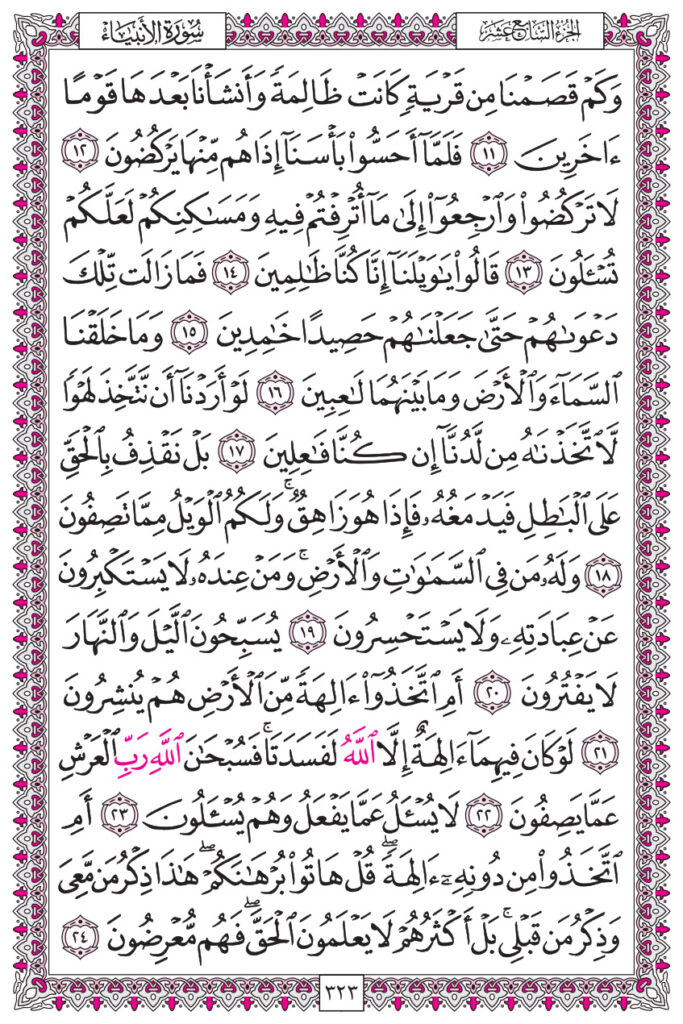 الجزء السابع عشر
سورة الأنبياء
وَكَمْ قَصَمْنَا مِن قَرْيَةٍ كَانَتْ ظَالِمَةً وَأَنشَأْنَا بَعْدَهَا قَوْمًا
ءَاخَرِينَ ١١ فَلَمَّآ أَحَسُّوا۟ بَأْسَنَآ إِذَا هُم مِّنْهَا يَرْكُضُونَ ١٢
لَا تَرْكُضُوا۟ وَٱرْجِعُوٓا۟ إِلَىٰ مَآ أُتْرِفْتُمْ فِيهِ وَمَسَـٰكِنِكُمْ لَعَلَّكُمْ
تُسْـَٔلُونَ ١٣ قَالُوا۟ يَـٰوَيْلَنَآ إِنَّا كُنَّا ظَـٰلِمِينَ ١٤ فَمَا زَالَت تِّلْكَ
دَعْوَىٰهُمْ حَتَّىٰ جَعَلْنَـٰهُمْ حَصِيدًا خَـٰمِدِينَ ١٥ وَمَا خَلَقْنَا
ٱلسَّمَآءَ وَٱلْأَرْضَ وَمَا بَيْنَهُمَا لَـٰعِبِينَ ١٦ لَوْ أَرَدْنَآ أَن نَّتَّخِذَ لَهْوًا
لَّٱتَّخَذْنَـٰهُ مِن لَّدُنَّآ إِن كُنَّا فَـٰعِلِينَ ١٧ بَلْ نَقْذِفُ بِٱلْحَقِّ
عَلَى ٱلْبَـٰطِلِ فَيَدْمَغُهُۥ فَإِذَا هُوَ زَاهِقٌ ۚ وَلَكُمُ ٱلْوَيْلُ مِمَّا تَصِفُونَ
١٨ وَلَهُۥ مَن فِى ٱلسَّمَـٰوَٰتِ وَٱلْأَرْضِ ۚ وَمَنْ عِندَهُۥ لَا يَسْتَكْبِرُونَ
عَنْ عِبَادَتِهِۦ وَلَا يَسْتَحْسِرُونَ ١٩ يُسَبِّحُونَ ٱلَّيْلَ وَٱلنَّهَارَ
لَا يَفْتُرُونَ ٢٠ أَمِ ٱتَّخَذُوٓا۟ ءَالِهَةً مِّنَ ٱلْأَرْضِ هُمْ يُنشِرُونَ
٢١ لَوْ كَانَ فِيهِمَآ ءَالِهَةٌ إِلَّا ٱللَّهُ لَفَسَدَتَا ۚ فَسُبْحَـٰنَ ٱللَّهِ رَبِّ ٱلْعَرْشِ
عَمَّا يَصِفُونَ ٢٢ لَا يُسْـَٔلُ عَمَّا يَفْعَلُ وَهُمْ يُسْـَٔلُونَ ٢٣ أَمِ
ٱتَّخَذُوا۟ مِن دُونِهِۦٓ ءَالِهَةً ۖ قُلْ هَاتُوا۟ بُرْهَـٰنَكُمْ ۖ هَـٰذَا ذِكْرُ مَن مَّعِىَ
وَذِكْرُ مَن قَبْلِى ۚ بَلْ أَكْثَرُهُمْ لَا يَعْلَمُونَ ٱلْحَقَّ ۖ فَهُم مُّعْرِضُونَ ٢٤
٣٢٣